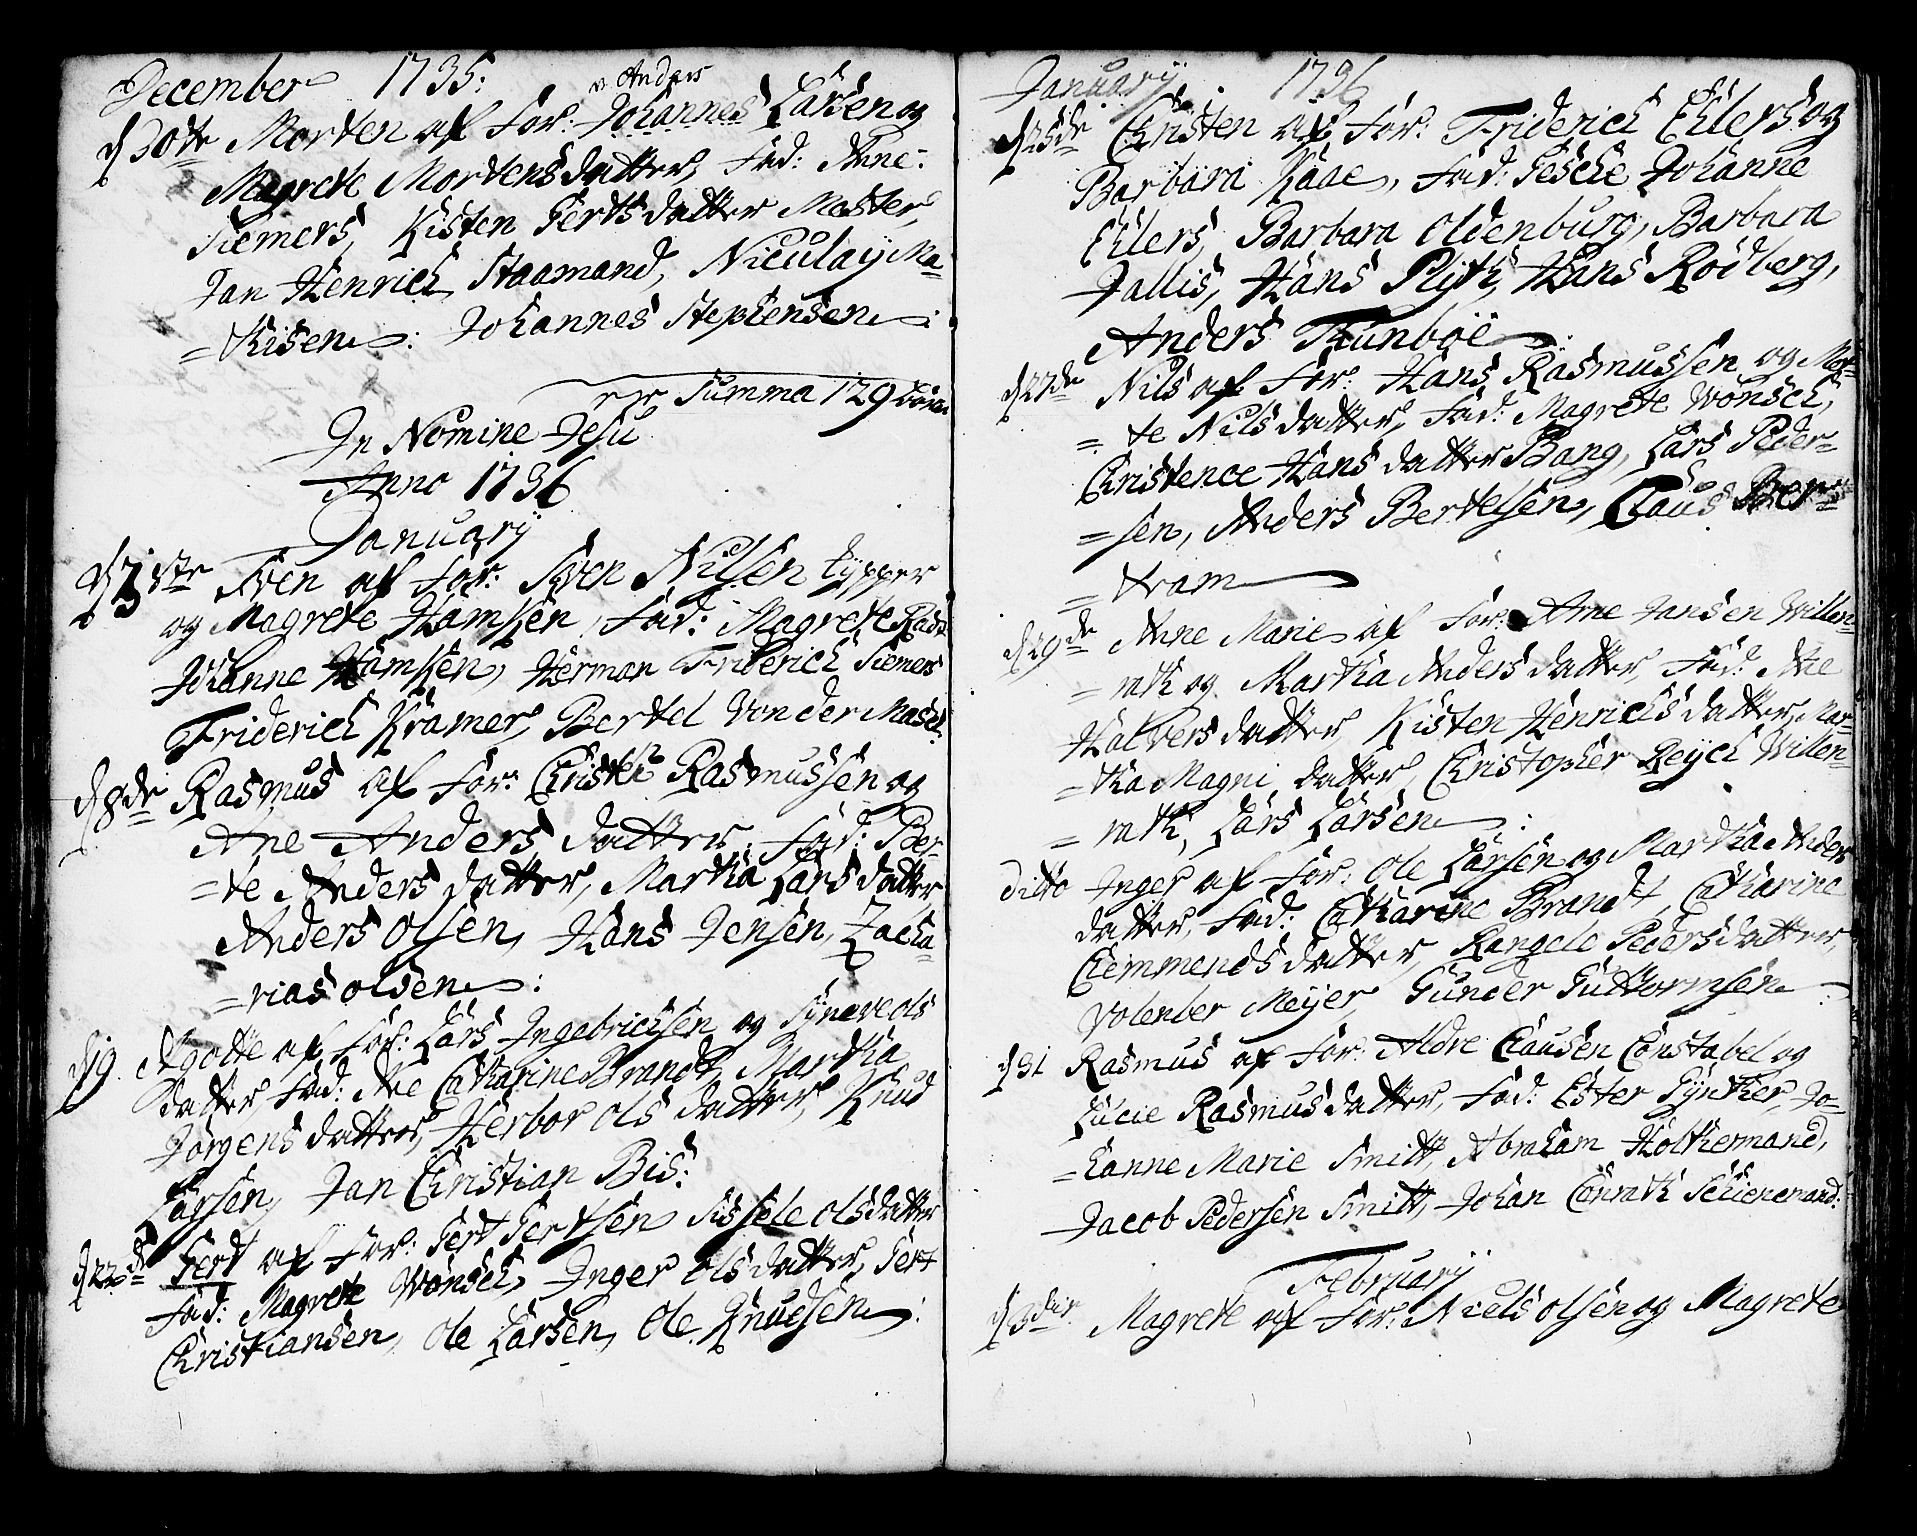 December 1735.
v. Anders
d 30te Morten af For: Johannes Larsen og
Magrete Mortensdatter, Fad: Anne
Siemers, Kisten Gertsdatter Mester,
Jan Henrich Staamand, Niculaÿ Ma=
=thisen: Johannes Stephensen:
Summa 129 børn
In Nomine Jesu
Anno 1736
Januarÿ
d 1ste Sven af For: Sven Nilsen typper
og Magrete Hamken, Fad: Magrete Rade
Johanne Hamken, Herman Friderich Siemers
Friderich Kramer, Bertel Von der Masch:
d 8de Rasmus af For: Christen Rasmussen og
Ane Anders datter, Fad: Ber=
=te Anders datter, Martha Lars datter
Anders Olsen, Hans Jensen, Zacha=
=rias Olsen:
d 19 Agotte af For: Lars Ingebrichsen og Syneve Ols
datter, Fad: Ane Catharine Brandt, Martha
Jørgens datter, Herbor Ols datter, Knud
Larsen, Jan Christian Bis:
d 22de Gert af For: Gert Gertsen Sissele Olsdatter
Fad: Magrete Wønsch, Inger Olsdatter, Gert
Christiansen, Ole Larsen, Ole Knudsen:
Januarÿ 1736
d 25de Christen af For: Friderich Ehlers og
Barbara Kaae, Fad: Gesche Johanne
Ehlers, Barbara Oldenburg, Barbara
Jallis, Hans Plÿth, Hans Rødberg,
Anders Trunböe
d 27de Nils af For: Hans Rasmussen og Mag=
=te Nilsdatter, Fad: Magrete Wønsch,
Christence Hans datter Bang, Lars Peder=
=sen, Anders Bertelsen, Claus Ber=
=tram
d 29de Anne Marie af For: Arne Jansen Willen=
=rath og Martha Andersdatter, Fad: Ane
Halversdatter, Kisten Henrichs datter, Mar=
=tha Magni datter, Christopher Reÿch Willen=
=rath, Lars Larsen:
ditto Inger af For: Ole Larsen og Martha Anders
datter, Fad: Catharine Brandt, Catharine
Clemmends datter, Rangele Pedersdatter,
Volenber Meÿer, Gunder Guttormsen
d 31 Rasmus af For: Aldre Clausen Constabel og
Lucie Rasmusdatter, Fad: Ester Gÿnther, Jo=
=hanne Marie Smitt, Abraham Holthermand,
Jacob Pedersen Smitt, Johan Conrath Schienemand:
Februarÿ
d 3die Magrete af For: Niels Olsen og Magrete